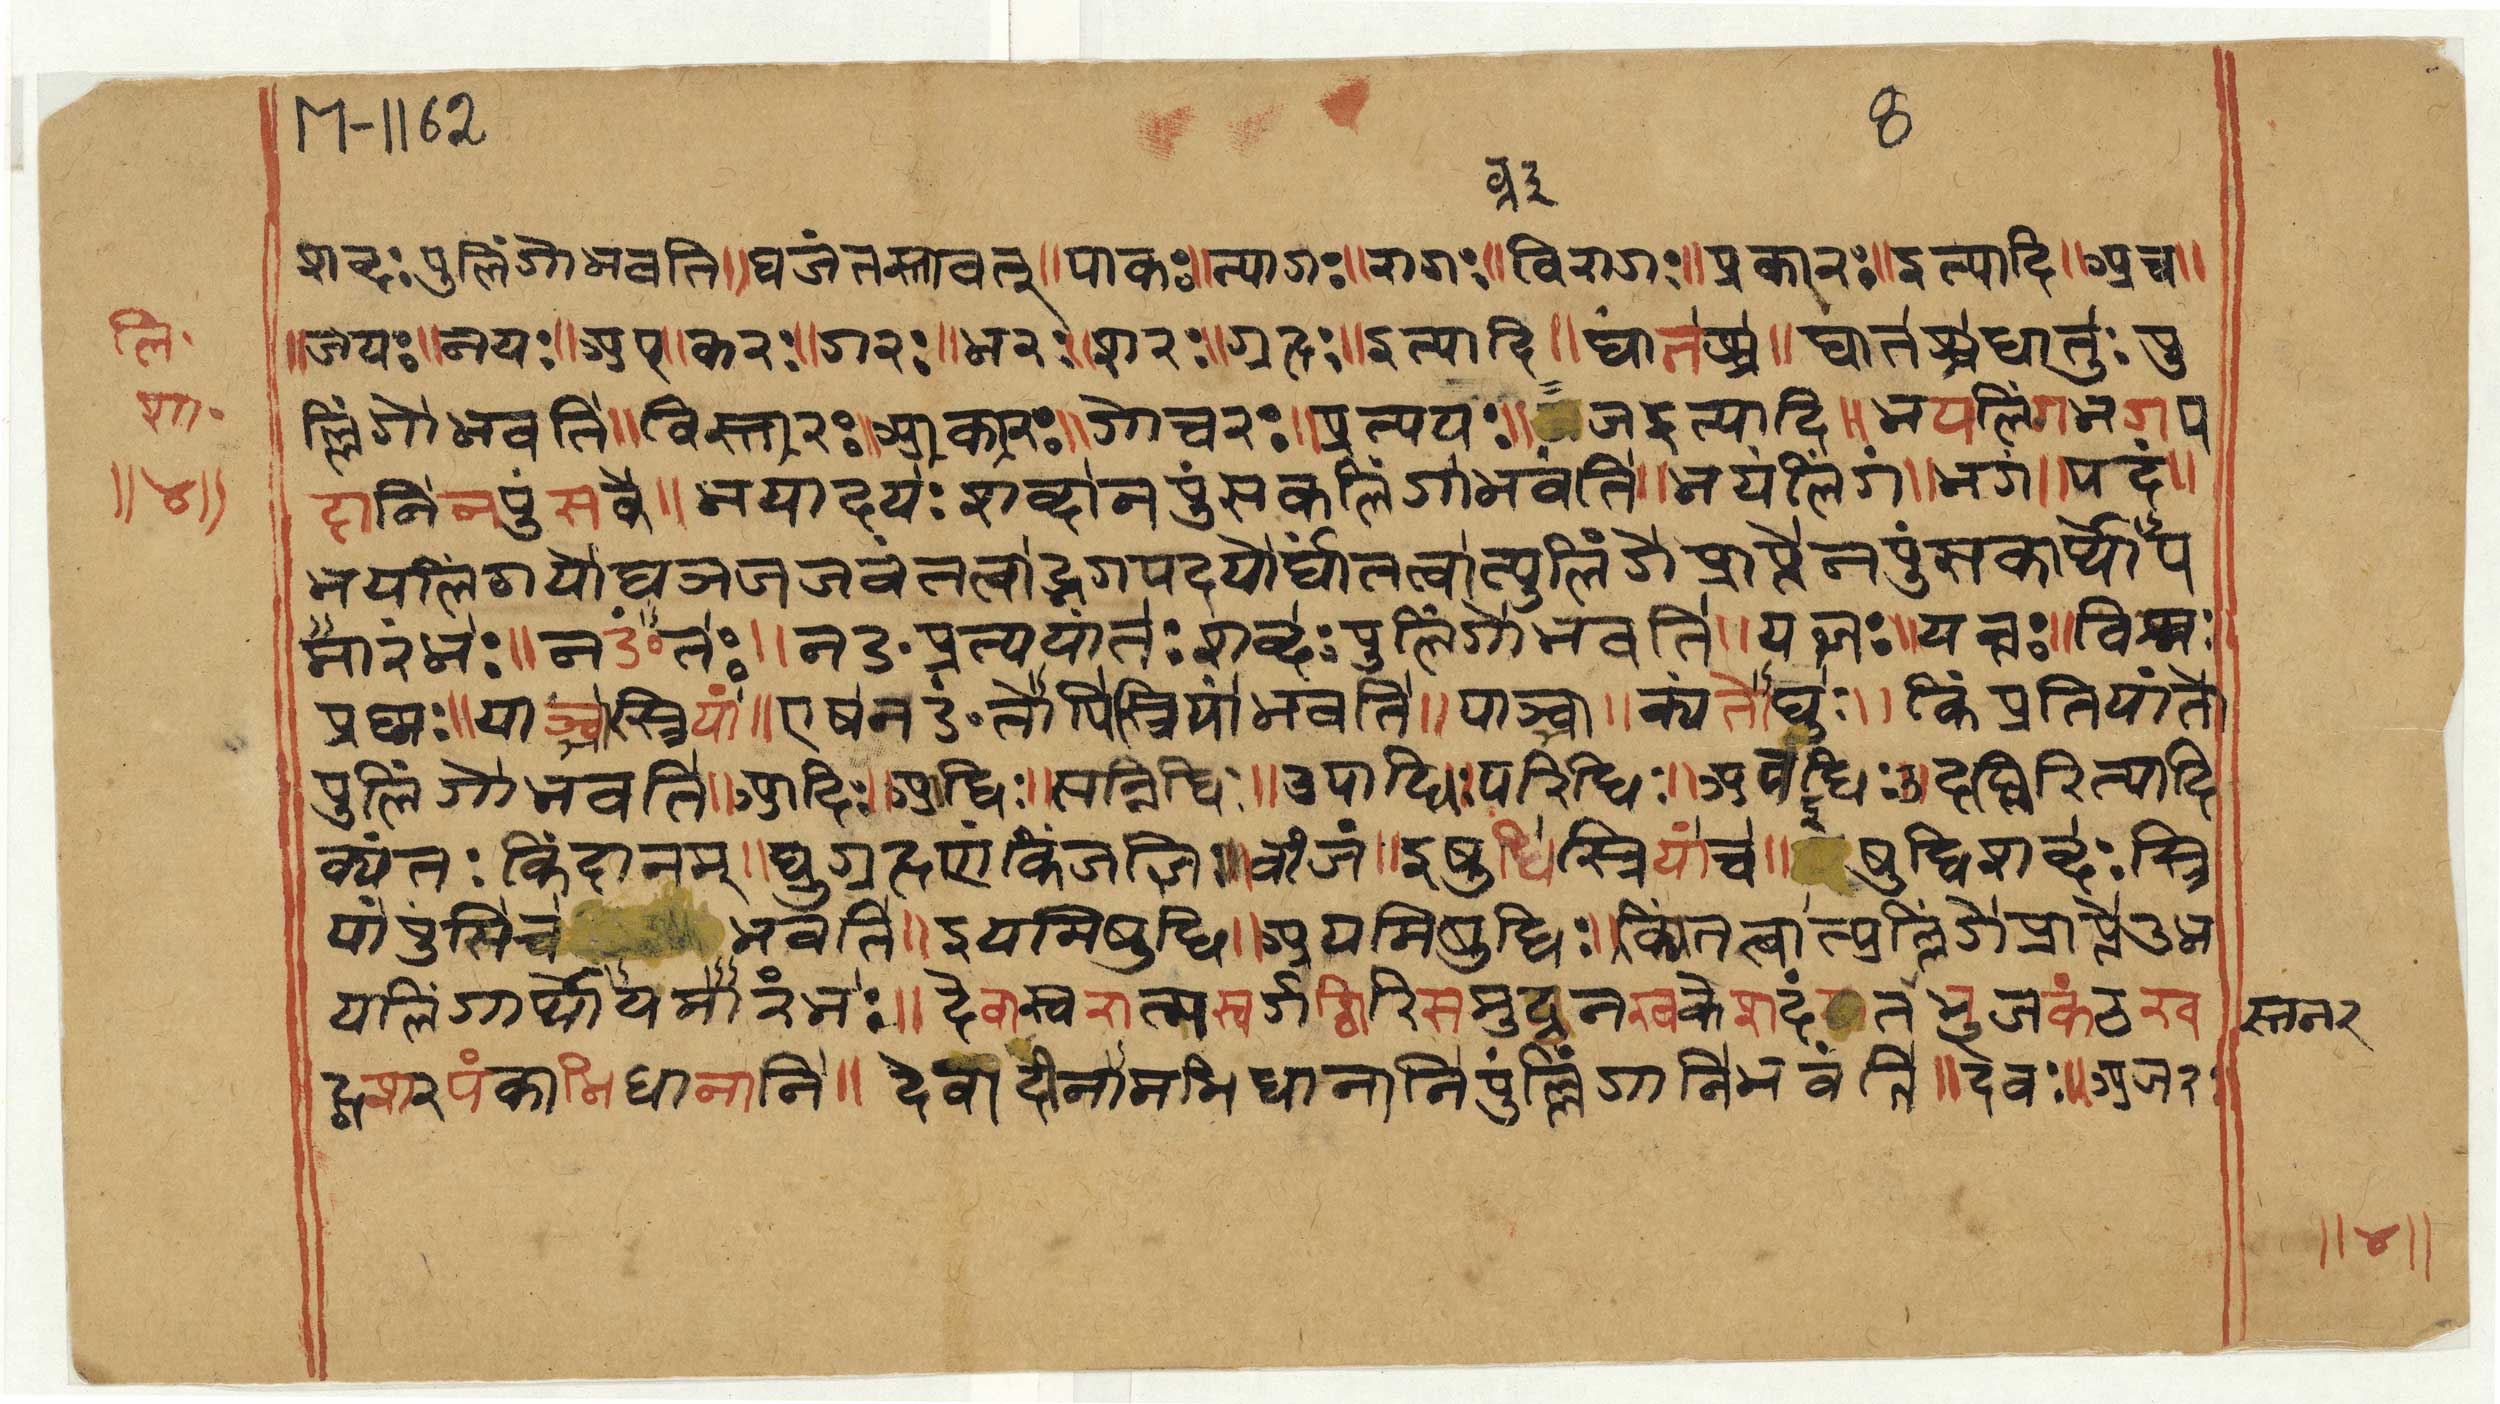 M-1162
8
शब्दः पुलिंगोभवति॥घञंतस्तावत्॥पाकः॥त्यागः॥रागः॥विरागः॥प्रकारः॥इत्यादि॥अच॥
लिं॰
॥जयः॥नयः॥अप्॥करः॥गरः॥भरः॥शरः॥ग्रहः॥इत्यादि॥घांतश्च॥घांतश्चधातुः पु
शा॰
ल्लिंगोभवति॥विस्तारः॥आकारः॥गोचरः॥प्रत्ययः॥ इत्यादि॥भयलिंगभगप
॥४॥
दानिनपुंसके॥भयादयः शब्दानपुंसकलिंगाभवंति॥भयंलिंगं॥भगं॥पदं॥
भयलिंगयोघञजजवंतत्वाद्भगपदयोर्घांतत्वात्पुलिंगेप्राप्तेनपुंसकार्थोप
मारंभः॥नङंतः॥नङ॰प्रत्ययांतः शब्दः पुलिंगोभवति॥यज्ञः॥यत्नः॥विश्नः
प्रश्नः॥याञ्चास्त्रियां॥एषनङं॰तोपिस्त्रियांभवति॥याञ्चा॥क्यंतोघुः॥किंप्रतियांतो
पुलिंगोभवति॥आदिः॥आधिः॥सन्निधिः॥उपाधिः परिधिः॥अवधिः॥उदधिरित्यादि
क्यंतः किंदानम्॥घुग्रहणंकिंजज्ञिः॥बीजं॥इषुधिस्त्रियांच॥इषुधिशब्दः स्त्रि
यांपुंसिच भवति॥इयमिषुधि॥अयमिषुधिः॥क्यिंतत्वात्पुलिंगेप्राप्तेउभ
यलिंगार्थोयमारंभः॥देवास्वरात्मस्वर्गगिरिसमुद्रनखकेशदंतस्तनभुजकंठख
स्तनर
ड्गशरपंकाभिधानानि॥देवादीनांमभिधानानिपुंल्लिंगानिभवंति॥देवः॥अजरः
॥४॥